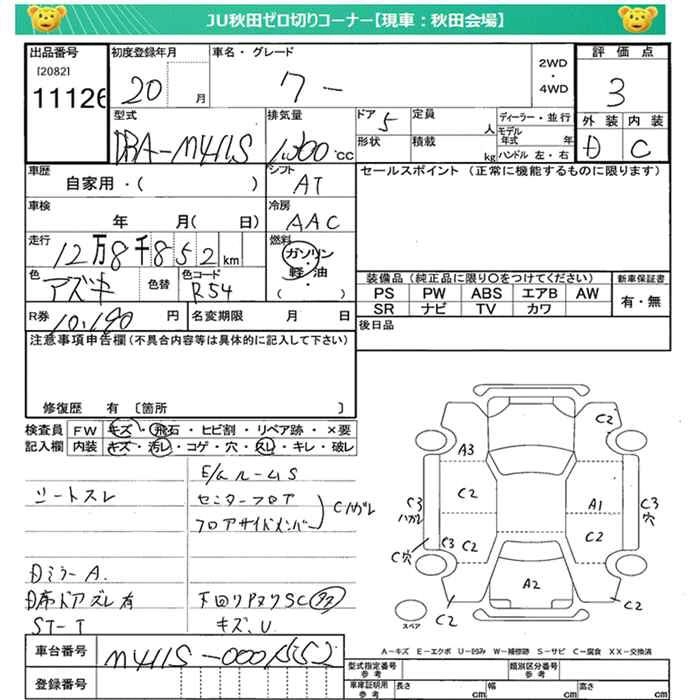 JU秋田ゼロ切りコーナー【現車：秋田会場】
出品番号
[2082]
11126
初度登録年月
20 月
車名・グレード
ワー
2WD
・
4WD
評価点
3
型式
DBA-M411S
排気量
1,300 cc
ドア
5
定員
人
形状
積載
kg
ディーラー・並行
モデル
年式 年
ハンドル 左・右
外装 内装
D C
車歴
自家用・( )
シフト
AT
セールスポイント (正常に機能するものに限ります)
車検
年 月( 日)
冷房
AAC
走行
12万8千852km
燃料
ガソリン
・
軽油
( )
色
アズキ
色替
色コード
R54
装備品 (純正品に限り〇をつけてください)
新車保証書
PS PW ABS エアB AW
SR ナビ TV カワ
有・無
R券
10,190 円
名変期限 月 日
後日品
注意事項申告欄(不具合内容等は具体的に記入して下さい)
修復歴 有 〔箇所 〕
検査員
記入欄
FW キズ・飛石・ヒビ割・リペア跡・×要
内装 キズ・汚レ・コゲ・穴・スレ・キレ・破レ
E/Gルーム S
シートスレ
センターフロア
フロアサイドメンバー
Cハガレ
Dミラー A.
D席ドアズレ有
ST-T
キズ、U
C2
A3
C2
C3
ハガレ
A1
C3
穴
C2
C穴
C3
C2
A2
C2
C2
スペア
A－キズ E－エクボ U－凹み W－補修跡 S－サビ C－腐食 XX－交換済
車台番号
M411S-0001552
登録番号
型式指定番号
参考
類別区分番号
参考
車庫証明用
参考
長さ cm
幅 cm
高さ cm